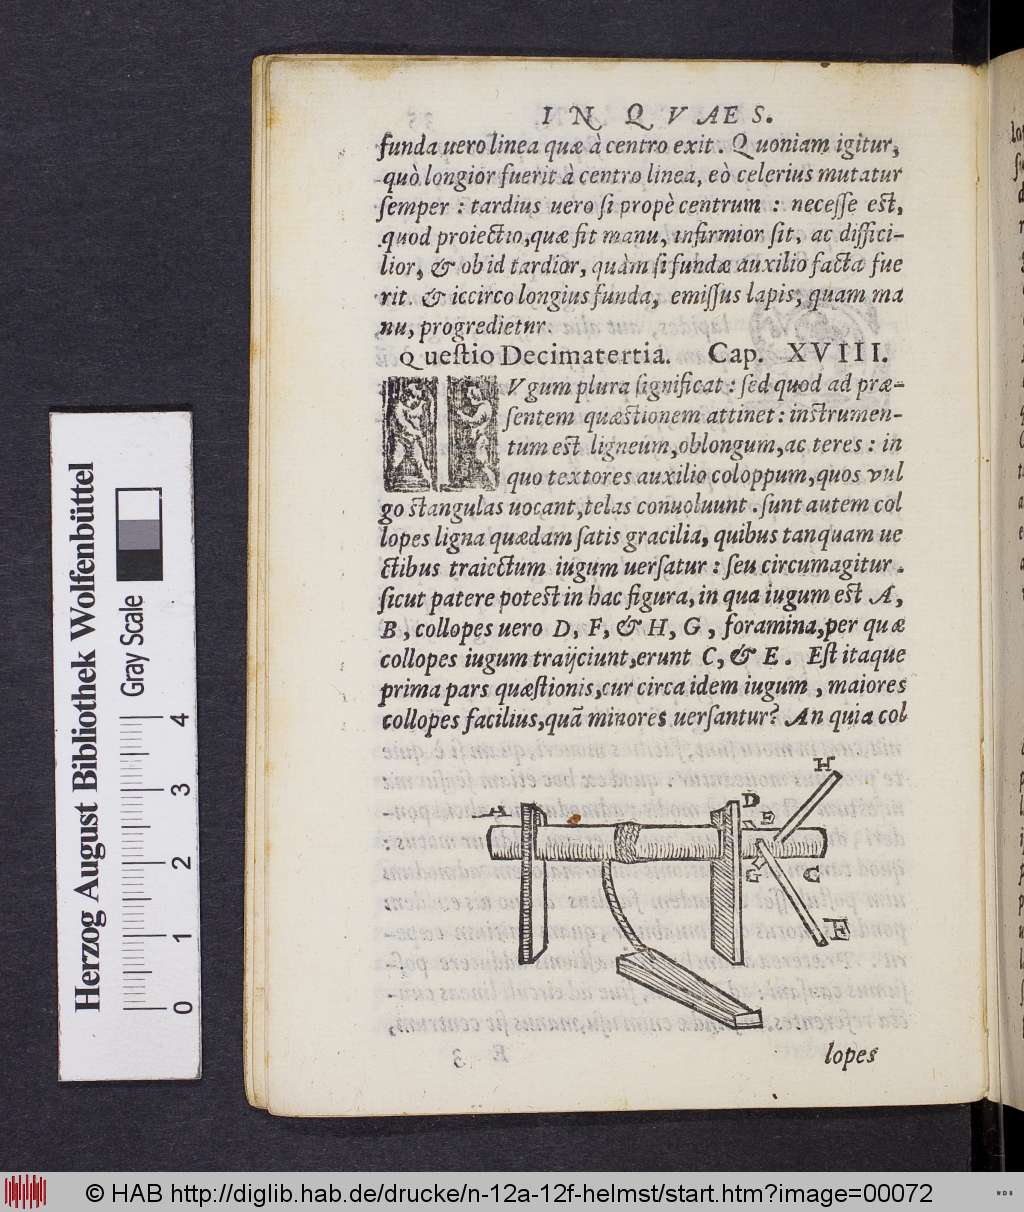 IN QVAES.
funda uero linea quæ à centro exit. Quoniam igitur,
quò longior fuerit à centro linea, eò celerius mutatur
ſemper : tardius uero ſi propè centrum : neceſſe eſt,
quod proiectio, quæ fit manu, infirmior ſit, ac diffici-
lior, & ob id tardior, quàm ſi fundæ auxilio facta fue
rit. & iccirco longius funda, emiſſus lapis, quam ma
nu, progredietur.
Queſtio Decimatertia. Cap. XVIII.
IVgum plura ſignificat : ſed quod ad præ-
ſentem quæſtionem attinet : inſtrumen-
tum eſt ligneum, oblongum, ac teres : in
quo textores auxilio coloppum, quos vul
go ſtangulas uocant, telas conuoluunt. ſunt autem col
lopes ligna quædam ſatis gracilia, quibus tanquam ue
ctibus traiectum iugum uerſatur : ſeu circumagitur.
ſicut patere poteſt in hac figura, in qua iugum eſt A,
B, collopes uero D, F, & H, G, foramina, per quæ
collopes iugum traijciunt, erunt C, & E. Eſt itaque
prima pars quæſtionis, cur circa idem iugum, maiores
collopes facilius, quã minores uerſantur? An quia col
H
A
D
E
G
C
F
lopes
Herzog August Bibliothek Wolfenbüttel
Gray Scale
0 1 2 3 4
© HAB http://diglib.hab.de/drucke/n-12a-12f-helmst/start.htm?image=00072